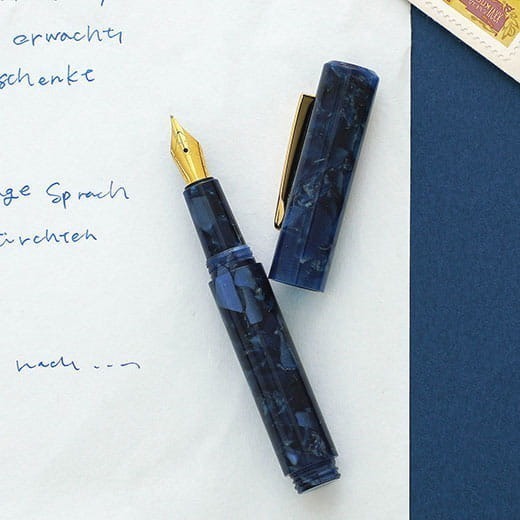 erwachte
schenke
ge Sprach
ürchten
nach ...